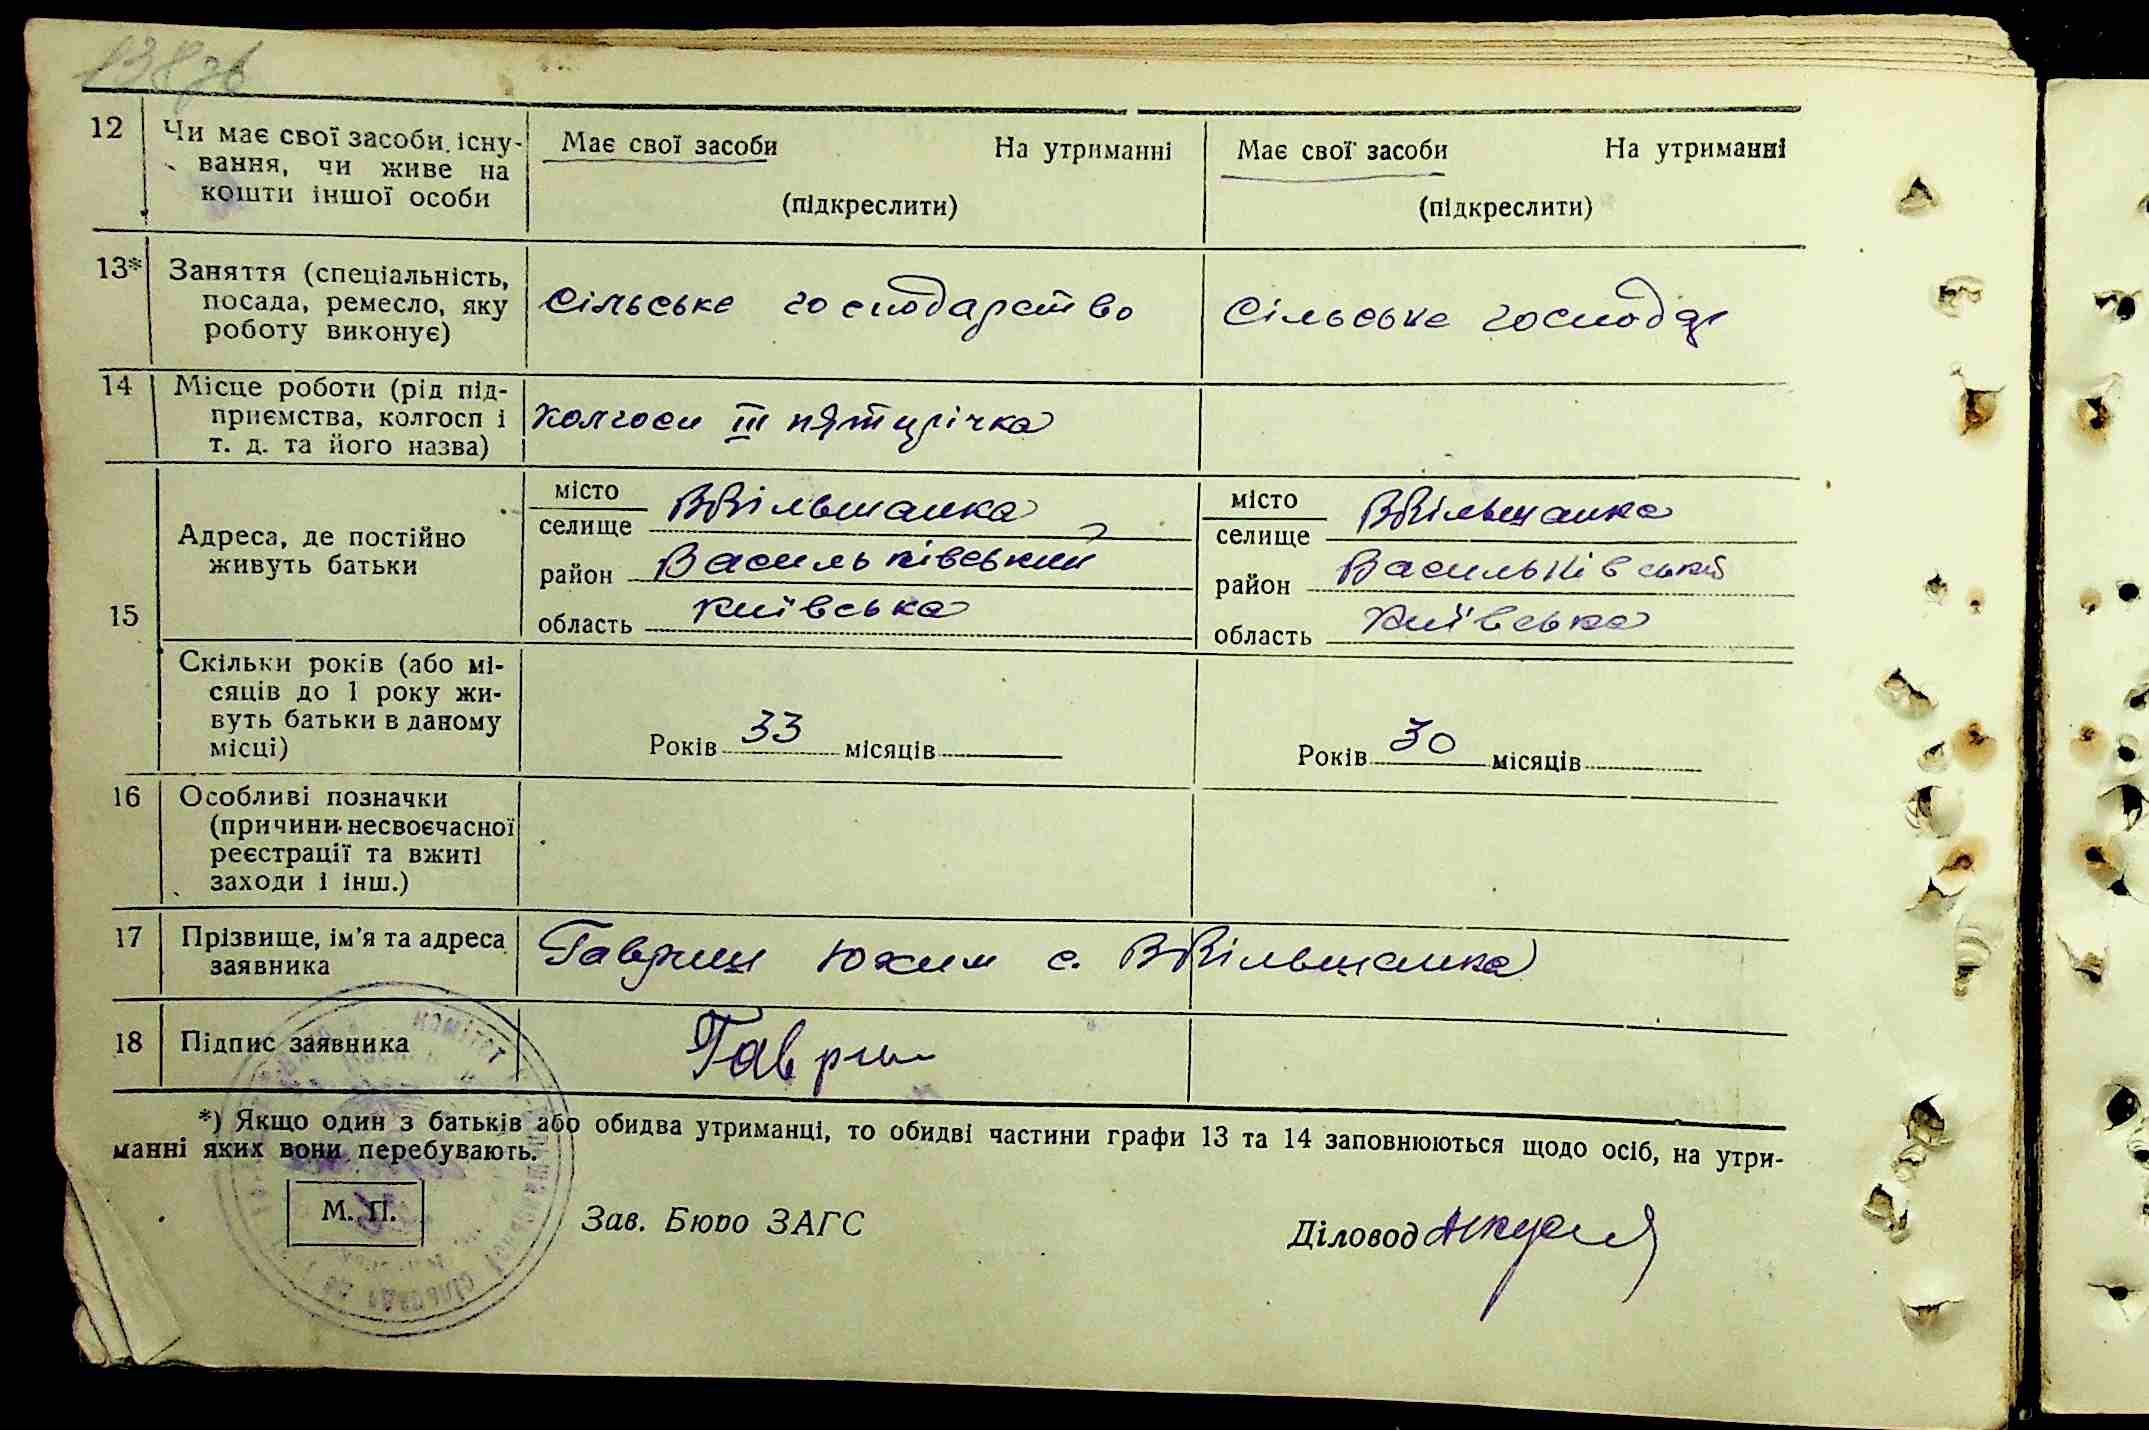 138зв
12 Чи має свої засоби існу-
вання, чи живе на
кошти іншої особи
Має свої засоби На утриманні
(підкреслити)
Має свої засоби На утриманні
(підкреслити)
13* Заняття (спеціальність,
посада, ремесло, яку
роботу виконує)
сільське господарство
Сільське господар
14 Місце роботи (рід під-
приємства, колгосп і
т. д. та його назва)
колгосп III пятирічка
15 Адреса, де постійно
живуть батьки
місто
селище ВВільшанка
район Васильківський
область Київська
місто
селище ВВільшанка
район Васильківський
область Київська
Скільки років (або мі-
сяців до 1 року жи-
вуть батьки в даному
місці)
Років 33 місяців
Років 30 місяців
16 Особливі позначки
(причини несвоєчасної
реєстрації та вжиті
заходи і інш.)
17 Прізвище, ім'я та адреса
заявника
Гавриш Юхим с. ВВільшанка
18 Підпис заявника
Гаври
*) Якщо один з батьків або обидва утриманці, то обидві частини графи 13 та 14 заповнюються щодо осіб, на утри-
манні яких вони перебувають.
М. П.
Зав. Бюро ЗАГС
Діловод